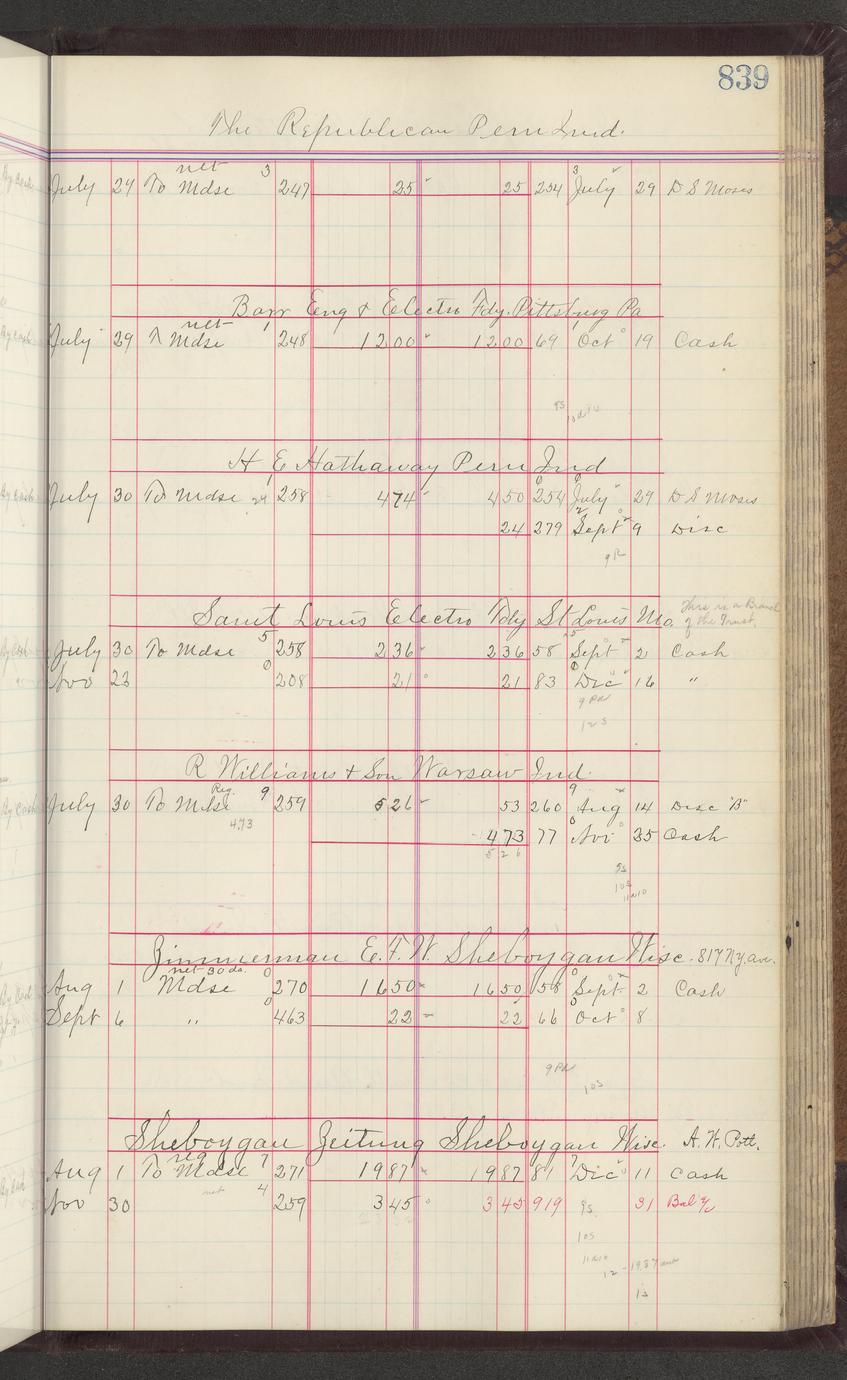 839
The Republican Peru Ind.
net 3 3
July 29 To Mdse 247 25 25 254 July 29 D S Moses
Barr Eng & Electro Fdy. Pittsburg Pa
net 1 1
July 29 To Mdse 248 12 00 12 00 69 Oct 19 Cash
9S
H E Hathaway Peru Ind
July 30 To Mdse 24 258 4 74 4 50 254 July 29 D S Moses
24 279 Sept 9 Disc
Saint Louis Electro Fdy St Louis Mo. This is a Branch
of the Trust.
July 30 To Mdse 5 258 2 36 2 36 58 5 Sept 2 Cash
Nov 23 0 208 21 21 83 0 Dec 16 "
9 Pd
12 S
R Williams & Son Warsaw Ind.
Reg. 9 9
July 30 To Mdse 259 5 26 53 260 Aug 14 Disc "B"
4.73 4 73 77 Nov 25 Cash
5 2 6
9s
10s
11 a 10
Zimmerman E. F. W. Sheboygan Wisc. 817 N.Y. ave.
net 30 da. 0 0
Aug 1 Mdse 270 16 50 16 50 58 Sept. 2 Cash
Sept 6 " 0 463 22 22 66 0 Oct 8
9 Pd
10s
Sheboygan Zeitung Sheboygan Wisc. A. W. Pott.
reg 7 7
Aug 1 To Mdse 271 19 87 19 87 81 Dec 11 Cash
net 4
Nov 30 259 3 45 3 45 919 9s 31 Bal %
10s
11 a 10
12 - 19.87
1s